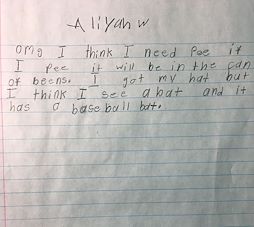 Aliyah w
OMg I think I need Pee if
I Pee it will be in the can
of beens. I got my hat but
I think I see a bat and it
has a baseball bat.